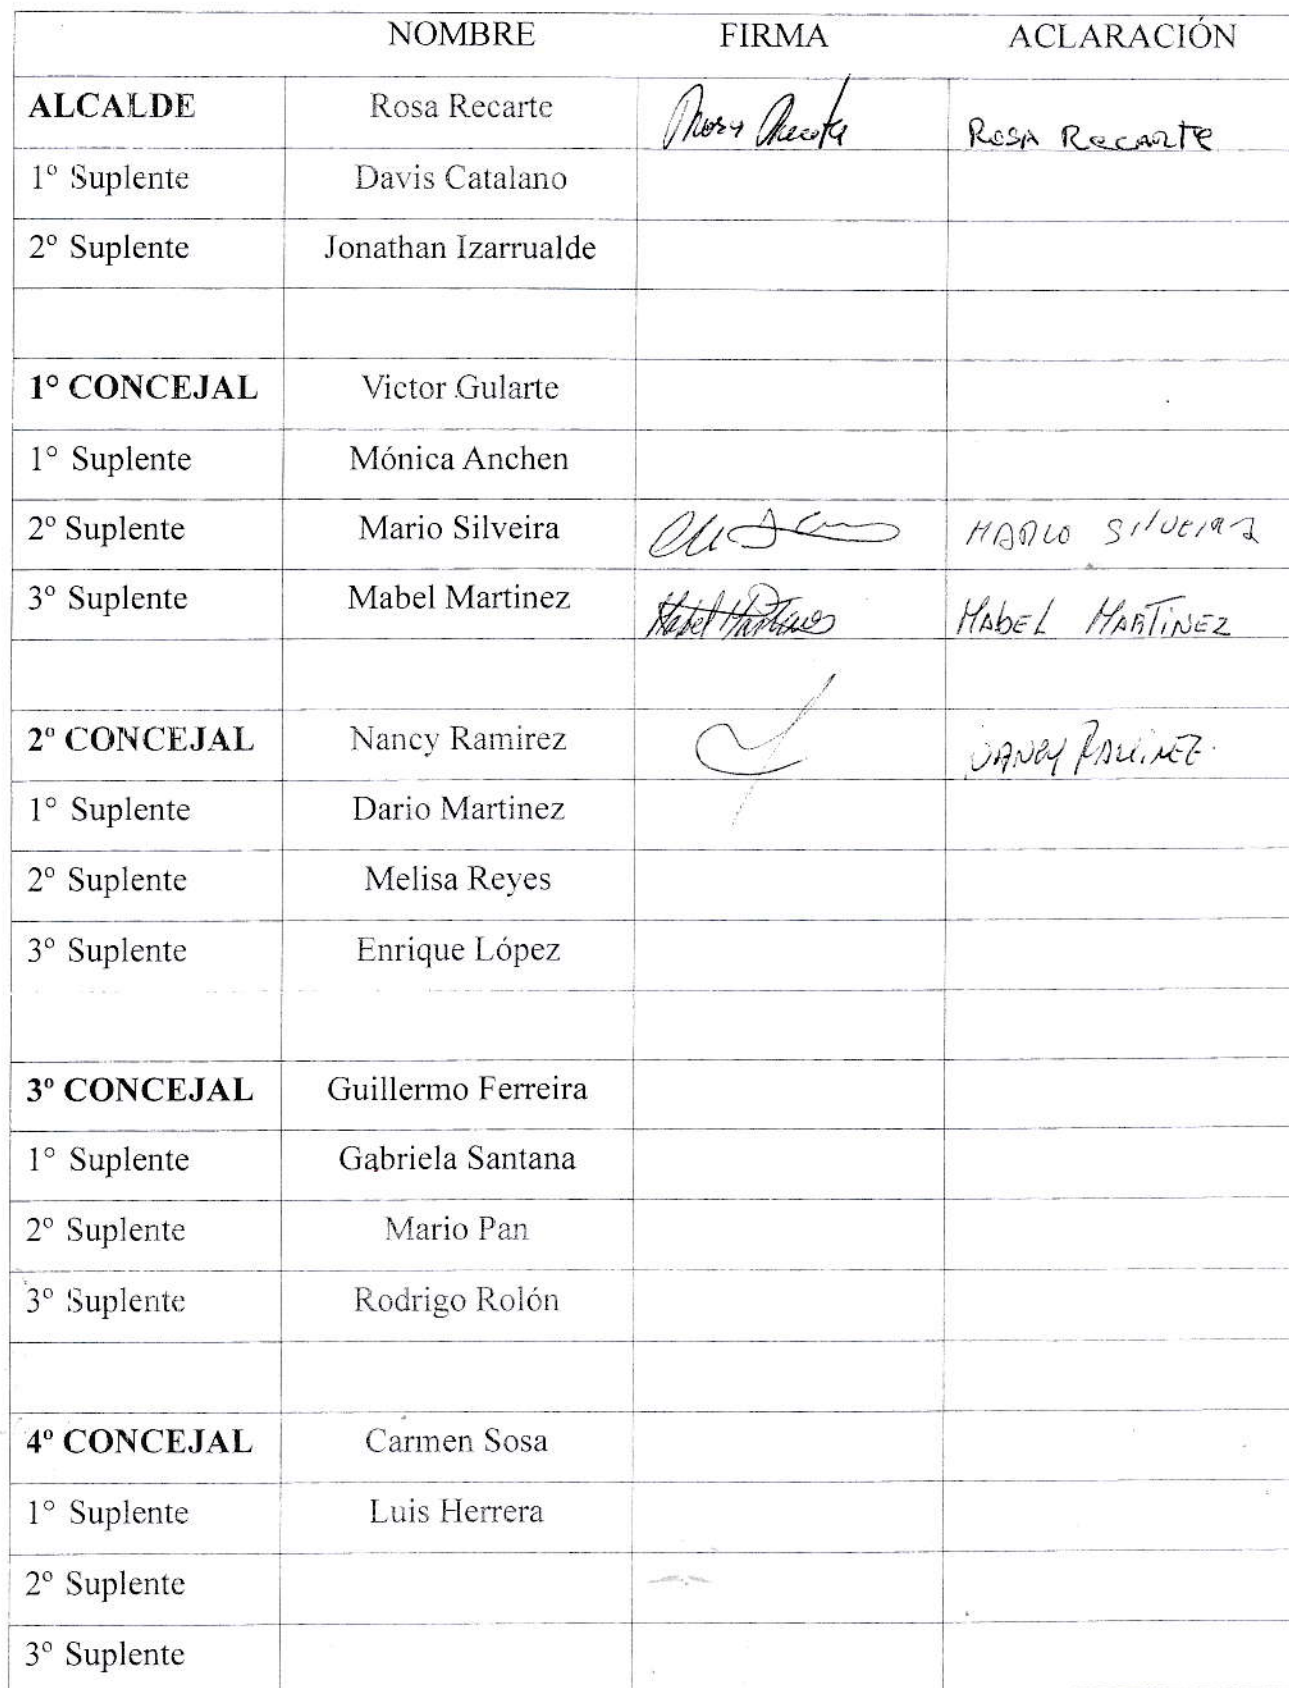 NOMBRE FIRMA ACLARACIÓN
ALCALDE Rosa Recarte Rosa Recarte ROSA RECARTE
1° Suplente Davis Catalano
2° Suplente Jonathan Izarrualde
1° CONCEJAL Victor Gularte
1° Suplente Mónica Anchen
2° Suplente Mario Silveira MARIO SILVEIRA
3° Suplente Mabel Martinez Mabel Martinez MAbEL MARTiNEZ
2° CONCEJAL Nancy Ramirez NANCY RAMIREZ
1° Suplente Dario Martinez
2° Suplente Melisa Reyes
3° Suplente Enrique López
3° CONCEJAL Guillermo Ferreira
1° Suplente Gabriela Santana
2° Suplente Mario Pan
3° Suplente Rodrigo Rolón
4° CONCEJAL Carmen Sosa
1° Suplente Luis Herrera
2° Suplente
3° Suplente